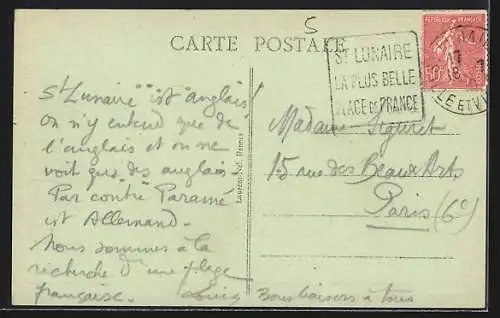 5
CARTE POSTALE
ST LUNAIRE
LA PLUS BELLE
PLAGE DE FRANCE
REPUBLIQUE FRANÇAISE
50c
17
18
ILLE ET V
St Lunaire "ist" anglais!
on n'y entend que de
l'anglais et on ne
voit que des anglais!
Par contre Paramé
ist Allemand.
Nous sommes à la
recherche d'une plage
française.
Bons baisers à tous
Laurent-Nel, Rennes
Madame Siguret
15 rue des Beaux Arts
Paris (6e)